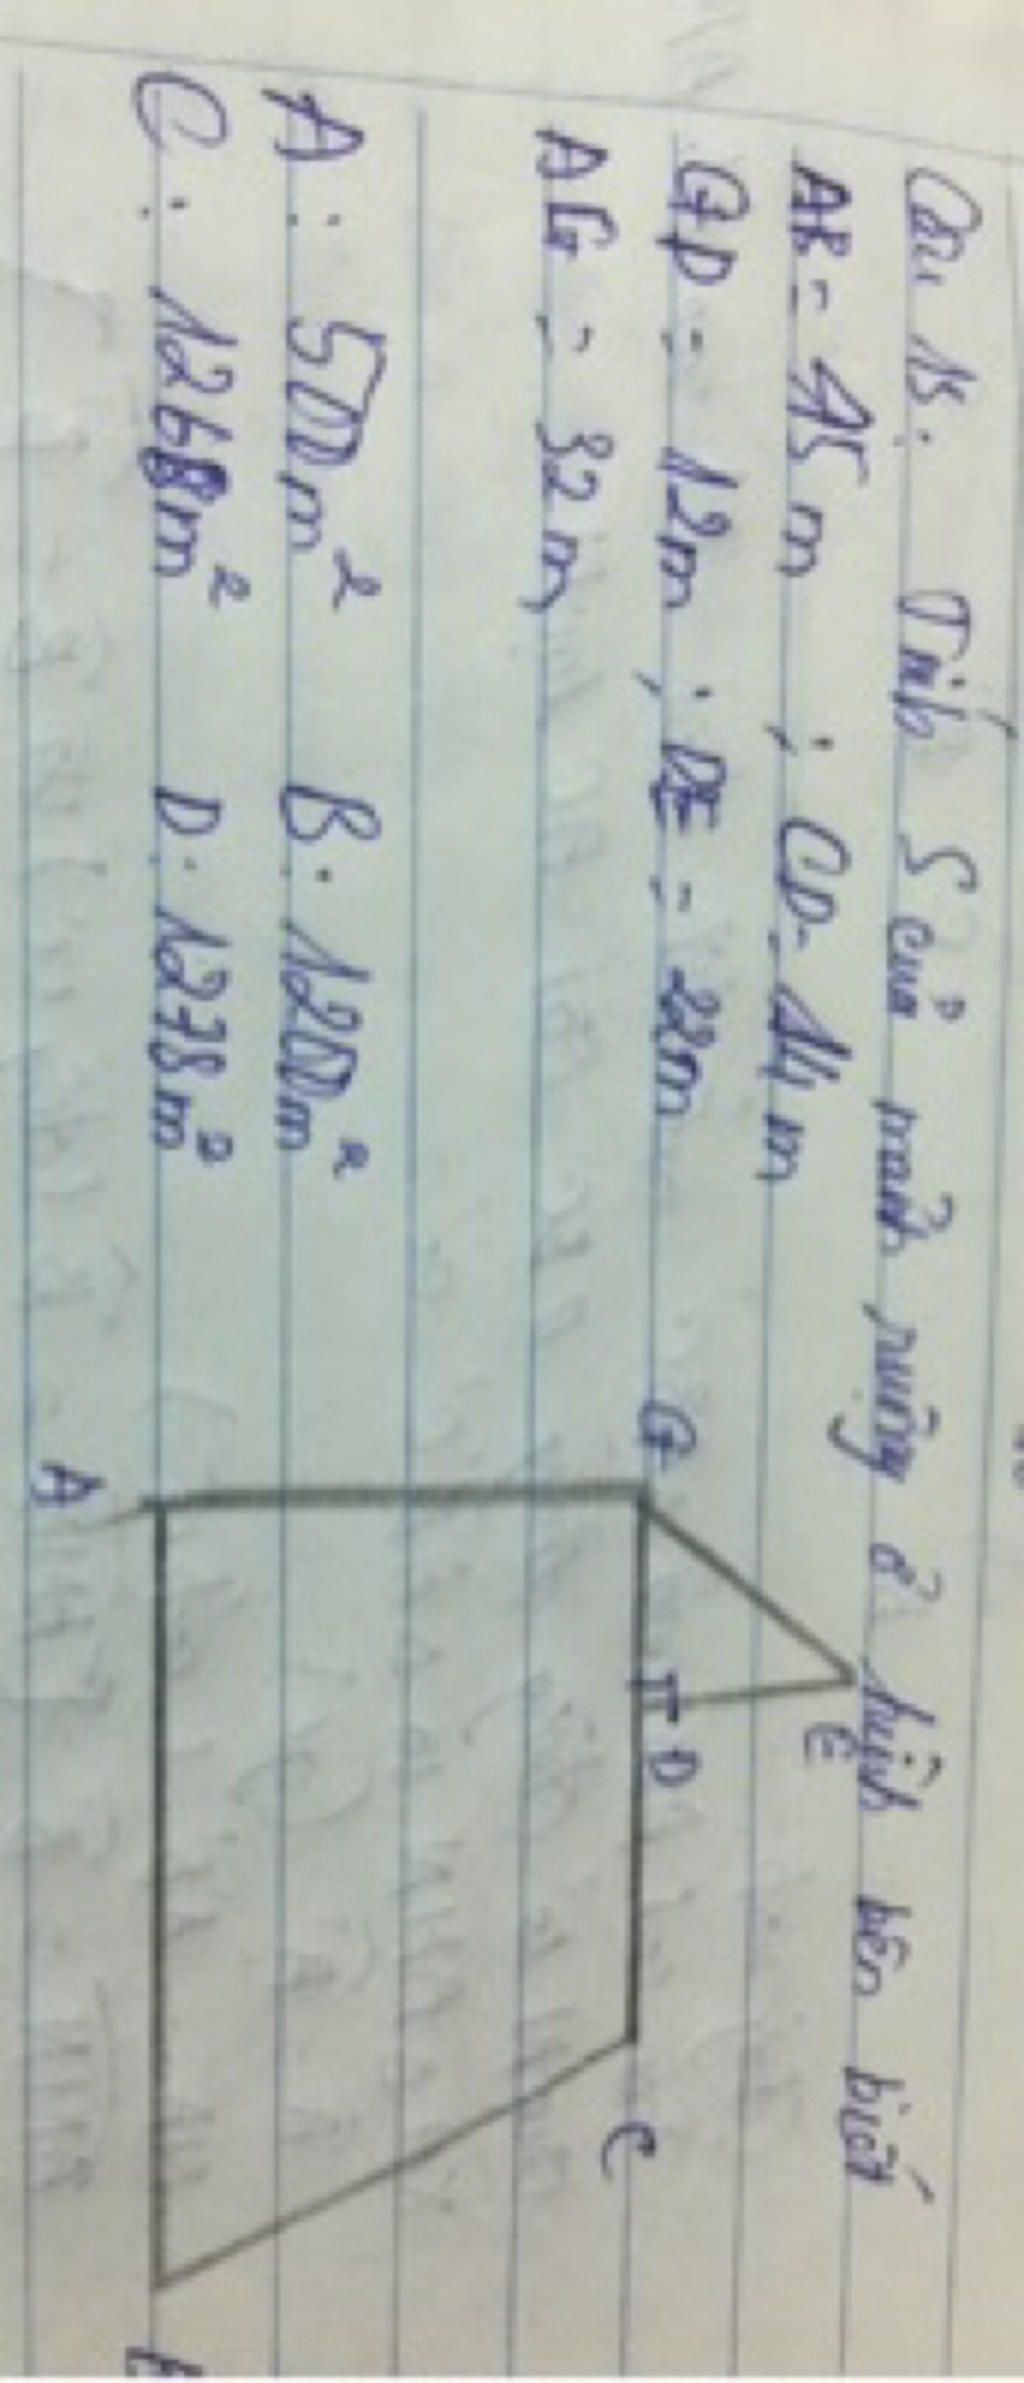 Câu 15: Tính S của mảnh ruộng ở hình bên biết
AB = 45 m ; CD = 14 m
GD = 12m ; DE = 22m
AG = 32 m
A : 500 m²   B : 1200 m²
C : 1268 m²   D : 1278 m²
G
E
D
C
A